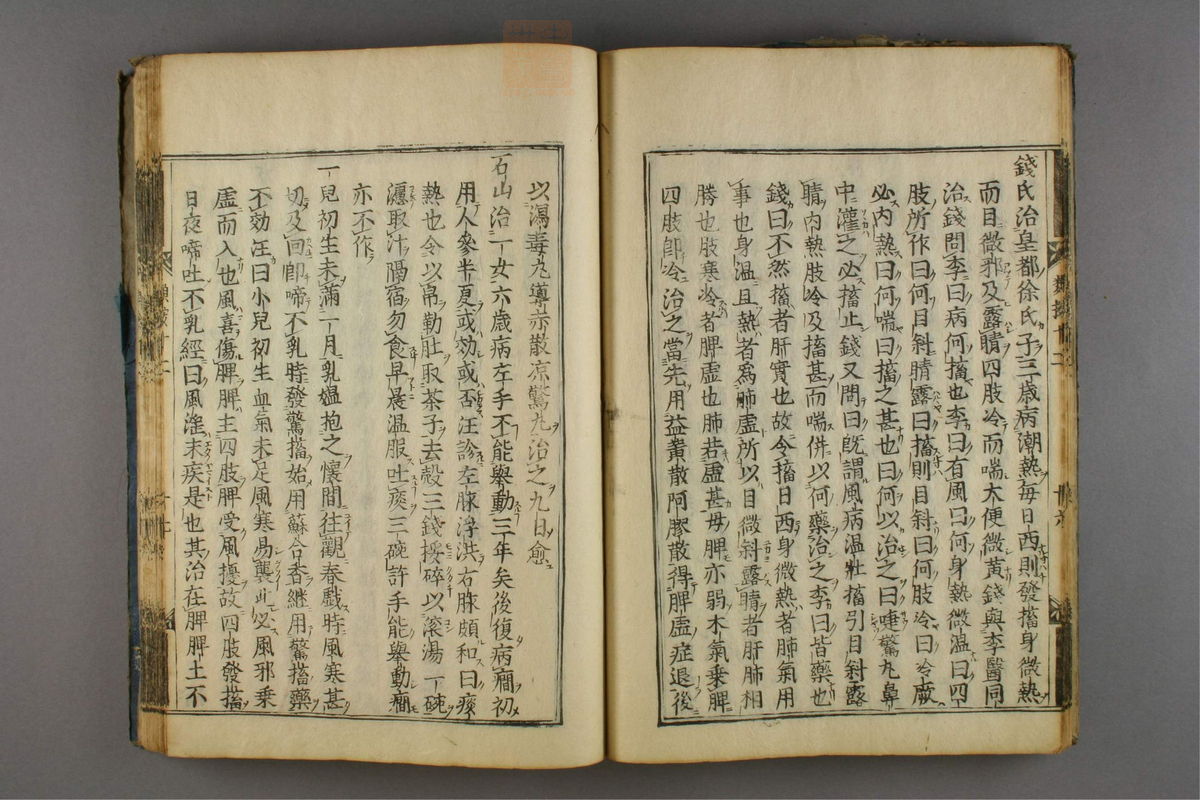 錢氏治皇都徐氏子三歲病潮熱每日西則發搐身微熱
而目微邪及露睛四肢冷而喘大便微黃錢與李醫同
治錢問李曰病何搐也李曰有風曰何身熱微溫曰四
肢所作曰何目斜睛露曰搐則目斜曰何肢冷曰冷厥
必內熱曰何喘曰搐之甚也曰何以治之曰嚏驚丸鼻
中灌之必搐止錢又問曰既謂風病溫壯搐引目斜露
睛內熱肢冷及搐甚而喘併以何藥治之李曰皆藥也
錢曰不然搐者肝實也故令搐日西身微熱者肺氣用
事也身溫且熱者為肺虛所以目微斜露睛者肝肺相
勝也肢寒冷者脾虛也肺若虛甚母脾亦弱木氣乘脾
四肢即冷治之當先用益黃散阿膠散得脾虛症退後
以瀉青丸導赤散涼驚丸治之九日愈
石山治一女六歲病左手不能舉動三年矣後復病癇初
用人參半夏或効或否汪診左脉浮洪右脉頗和曰痰
熱也令以帛勒肚取茶子去殼三錢挼碎以滾湯一碗
濾取汁隔宿勿食早晨溫服吐痰三碗許手能舉動癇
亦不作
一兒初生未滿一月乳媼抱之懷間往觀春戲時風寒甚
切及回即啼不乳時發驚搐始用蘇合香繼用驚搐藥
不効汪曰小兒初生血氣未足風寒易襲此必風邪乘
虛而入也風喜傷脾脾主四肢脾受風擾故四肢發搐
日夜啼吐不乳經曰風淫末疾是也其治在脾脾土不